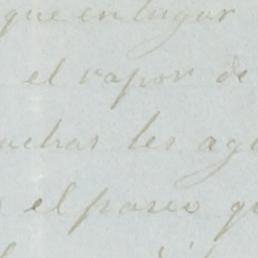 que en lugar
el vapor de
uchas les ag
el paseo qu